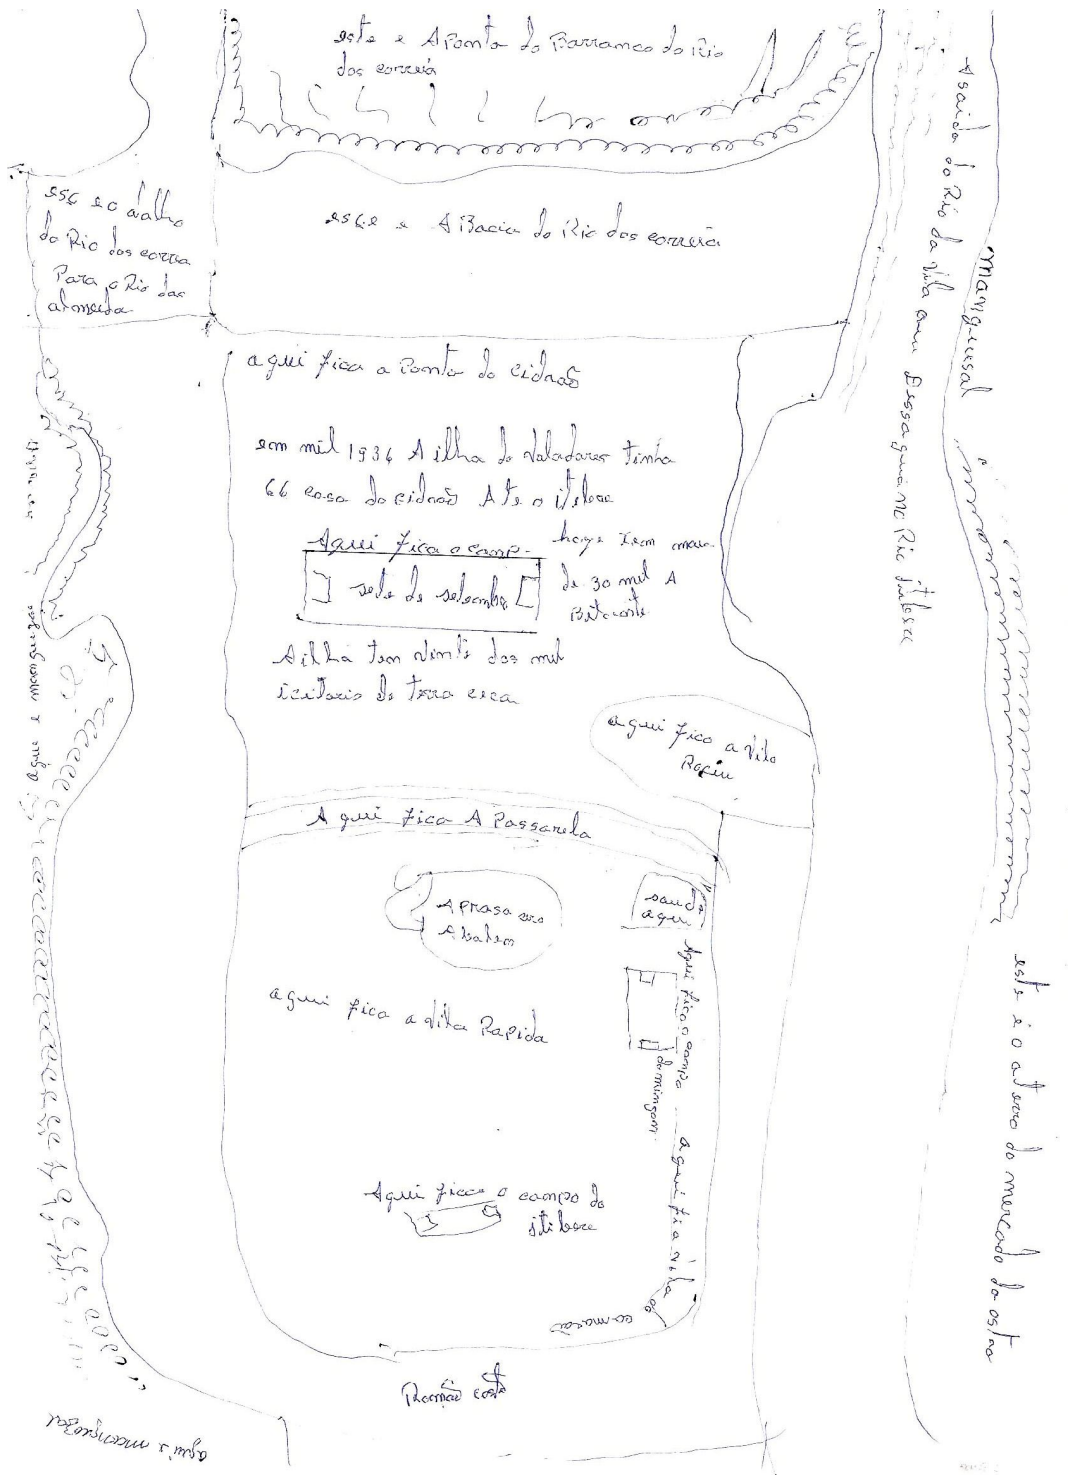 este e A Ponta do Barranco do Rio
dos correia
esse e o atalho
do Rio dos correa
Para o Rio das
almeida
esse e A Bacia do Rio dos correia
A saida do Rio da vila que Essagua no Rio itibere
manguesal
aqui fica a Ponta do cidrão
em mil 1936 A ilha do Valadares tinha
66 casa do cidrão Ate o itibere
hoge tem mais
de 30 mil A
Bitante
Aqui fica o camp
sete de setembro
A ilha tem vinte dos mil
icitario de terra cica
aqui fica a vila
Rociu
A qui fica A Passarela
A Prasa
saude
aqui
aqui fica a vila Rapida
Aqui fica o campo
domingom
aqui fica o campo do
itibere
aqui fica vila do
comarão
Romão costa
aqui e manguesal
aqui e manguesal
este é o aterro do mercado da ostra